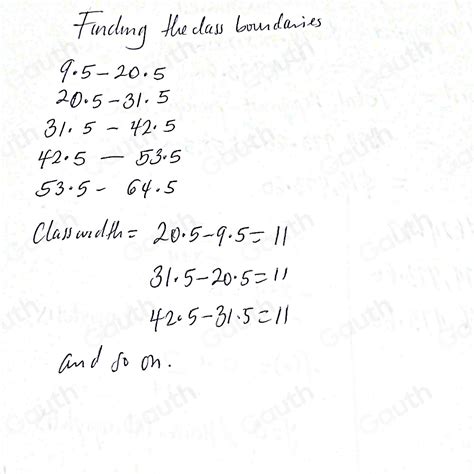 Finding the class boundaries
9.5-20.5
20.5-31.5
31.5 - 42.5
42.5 — 53.5
53.5- 64.5
Class width = 20.5-9.5=11
31.5-20.5=11
42.5-31.5=11
and so on.